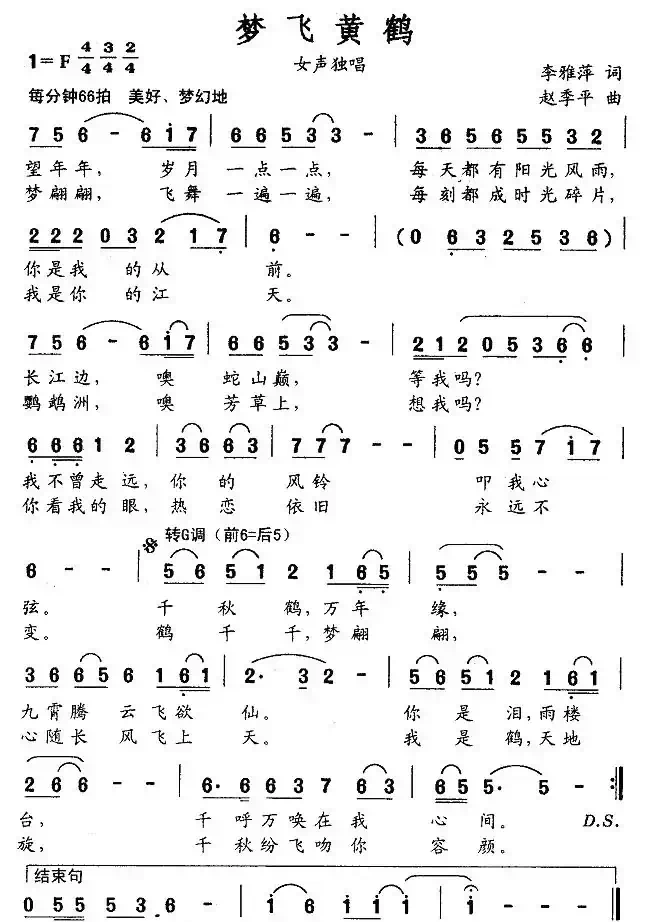 梦飞黄鹤
1=F 4/4 3/4 2/4
女声独唱
李雅萍 词
每分钟66拍 美好、梦幻地
赵季平 曲
7 5 6 - 6 i 7 | 6 6 5 3 3 - | 3 6 5 6 5 5 3 2 |
望年年, 岁月 一点一点, 每天都有阳光风雨,
梦翩翩, 飞舞 一遍一遍, 每刻都成时光碎片,
2 2 2 0 3 2 1 7 | 6 - - | (0 6 3 2 5 3 6) |
你是我 的从 前。
我是你 的江 天。
7 5 6 - 6 i 7 | 6 6 5 3 3 - | 2 1 2 0 5 3 6 6 |
长江边, 噢 蛇山巅, 等我吗?
鹦鹉洲, 噢 芳草上, 想我吗?
6 6 6 1 2 | 3 6 6 3 | 7 7 7 - - | 0 5 5 7 i 7 |
我不曾走远, 你的 风铃 叩我心
你看我的眼, 热恋 依旧 永远不
转G调(前6=后5)
6 - - | 5 6 5 1 2 1 6 5 | 5 5 5 - - |
弦。 千秋鹤, 万年 缘,
变。 鹤千千, 梦翩 翩,
3 6 6 5 6 1 6 1 | 2· 3 2 - - | 5 6 5 1 2 1 6 1 |
九霄腾云飞欲 仙。 你是泪, 雨楼
心随长风飞上 天。 我是鹤, 天地
2 6 6 - - | 6· 6 6 3 7 6 3 | 6 5 5 5· 5 - :||
台, 千呼万唤在我 心间。 D.S.
旋, 千秋纷飞吻你 容颜。
结束句
0 5 5 5 3 6 - | i 6 i i i | i - - - ||